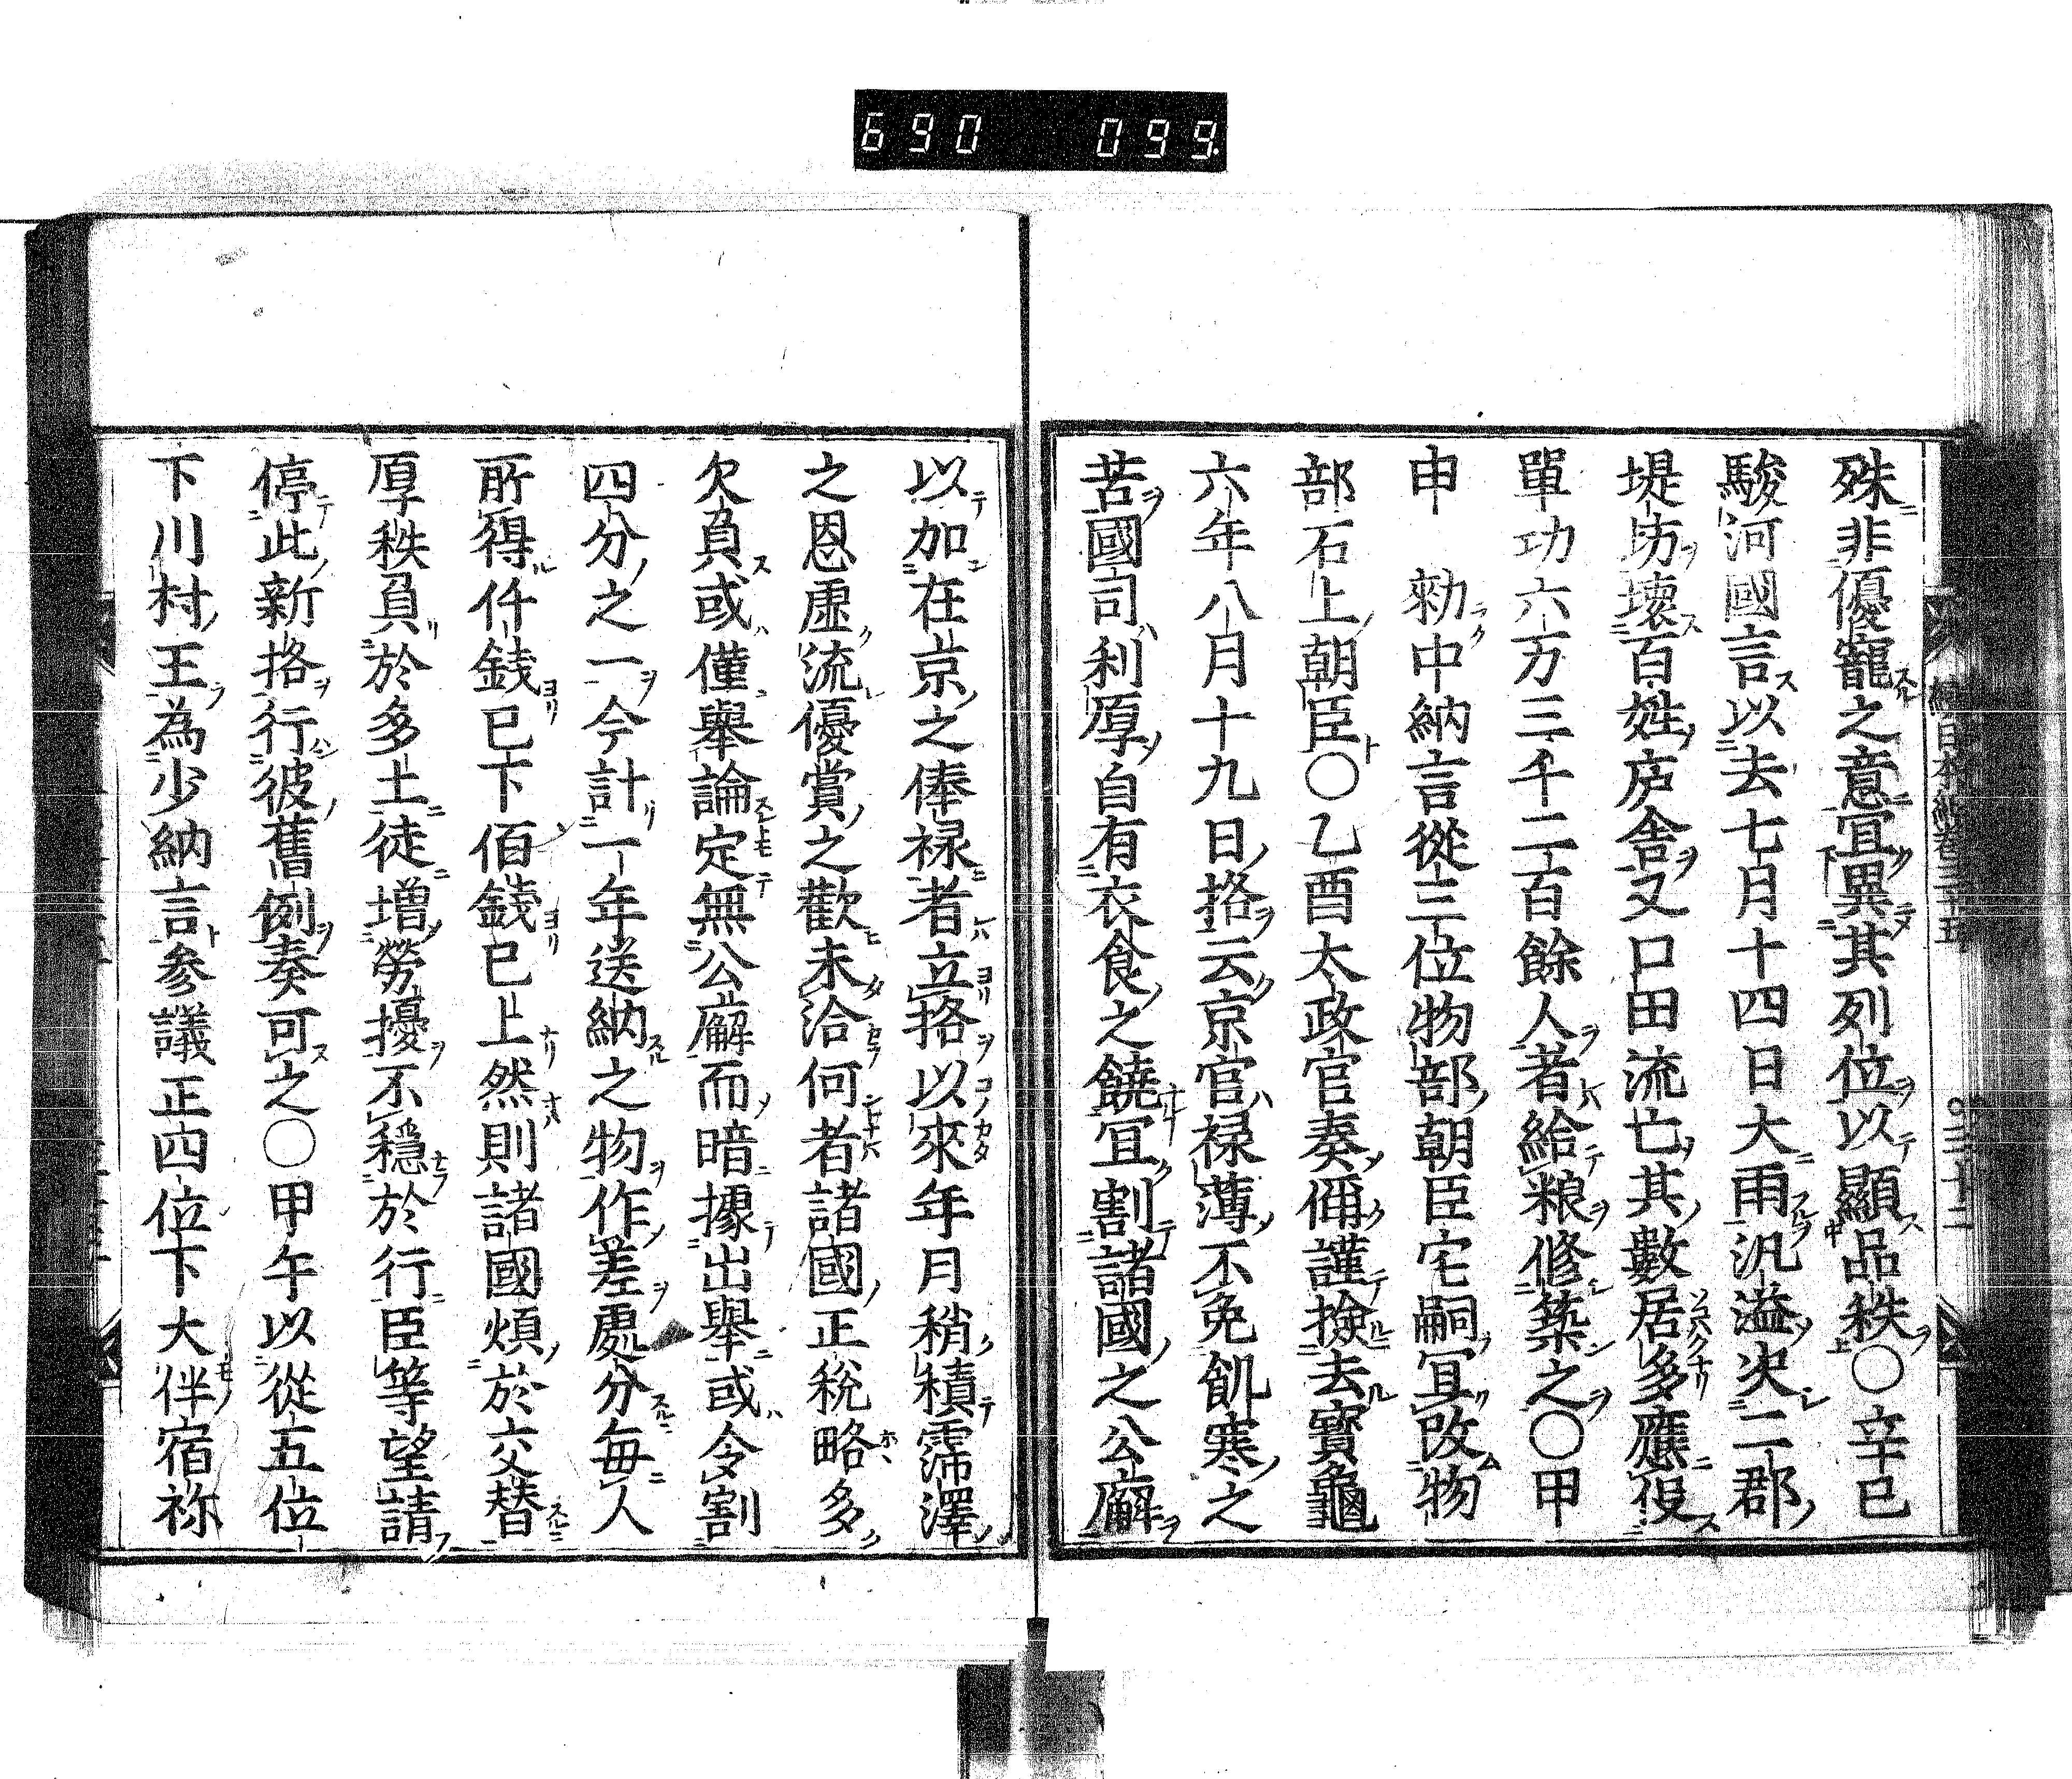 690 099
殊非優寵之意冝異其列位以顯品秩〇辛巳
駿河國言以去七月十四日大雨汎溢决二郡
堤坊壞百姓庐舎又口田流亡其數居多應役
單功六万三千二百餘人者給粮修築之〇甲
申　勑中納言從三位物部朝臣宅嗣冝改物
部石上朝臣〇乙酉太政官奏偁謹撿去寳龜
六年八月十九日挌云京官禄薄不免飢寒之
苦國司利厚自有衣食之饒冝割諸國之公廨
以加在京之俸禄者立挌以來年月稍積霈澤
之恩虚流優賞之歡未洽何者諸國正稅略多
欠負或僅舉論定無公廨而暗據出舉或令割
四分之一今計一年送納之物作差處分毎人
所得仟錢已下佰錢已上然則諸國煩於交替
厚秩負於多士徒増勞擾不穏於行臣等望請
停此新挌行彼舊例奏可之〇甲午以從五位
下川村王為少納言參議正四位下大伴宿祢